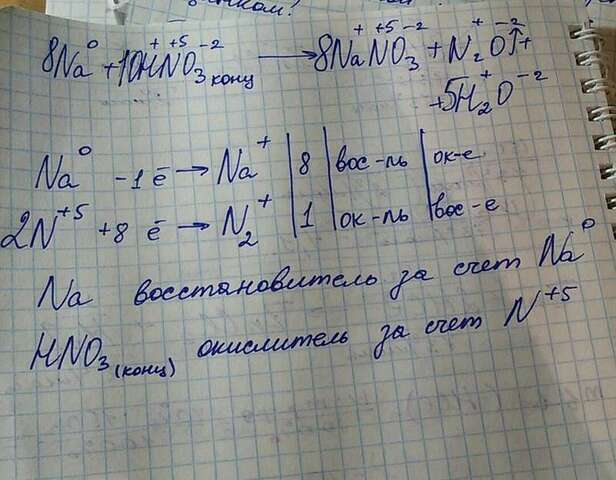 8Na⁰ + 10H⁺N⁺⁵O₃⁻² конц → 8Na⁺N⁺⁵O₃⁻² + N₂⁺O⁻²↑ +
+ 5H₂⁺O⁻²
Na⁰ - 1 ē → Na⁺ | 8 | вос-ль | ок-е
2N⁺⁵ + 8 ē → N₂⁺ | 1 | ок-ль | вос-е
Na восстановитель за счет Na⁰
HNO₃ (конц) окислитель за счет N⁺⁵